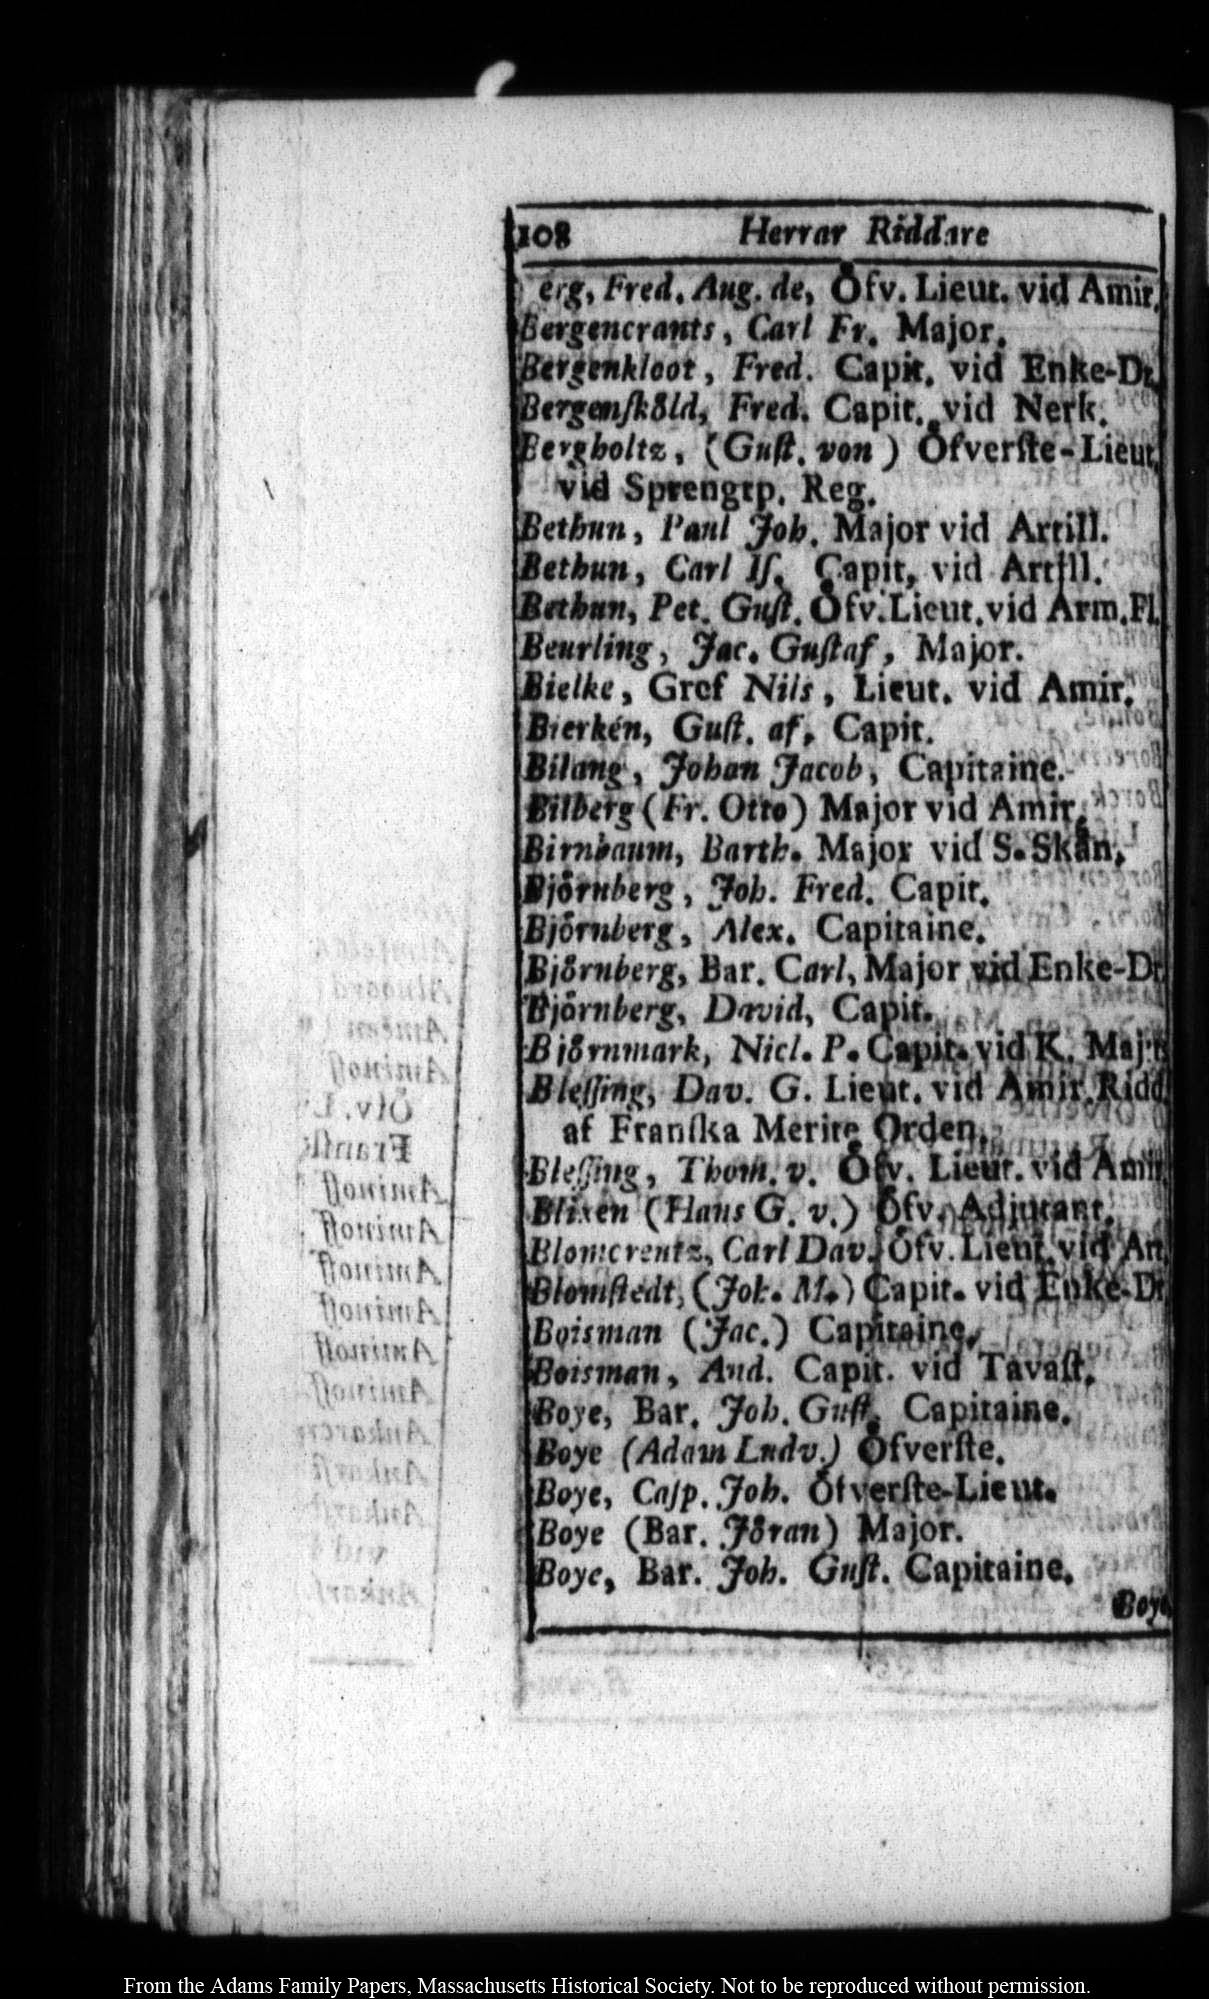 108 Herrar Riddare
erg, Fred. Aug. de, Öfv. Lieut. vid Amir.
Bergencrants, Carl Fr. Major.
Bergenkloot, Fred. Capit. vid Enke-Dr.
Bergenſköld, Fred. Capit. vid Nerk.
Bergholtz, (Guſt. von) Öfverſte-Lieut.
vid Sprengtp. Reg.
Bethun, Paul Joh. Major vid Artill.
Bethun, Carl Iſ. Capit, vid Artill.
Bethun, Pet. Guſt. Öfv. Lieut. vid Arm. Fl.
Beurling, Jac. Guſtaf, Major.
Bielke, Gref Nils, Lieut. vid Amir.
Bierkén, Guſt. af, Capit.
Bilang, Johan Jacob, Capitaine.
Bilberg (Fr. Otto) Major vid Amir.
Birnbaum, Barth. Major vid S. Skån.
Björnberg, Joh. Fred. Capit.
Björnberg, Alex. Capitaine.
Björnberg, Bar. Carl, Major vid Enke-Dr.
Björnberg, David, Capit.
Björnmark, Nicl. P. Capit. vid K. Maj:ts
Bleſſing, Dav. G. Lieut. vid Amir. Ridd.
af Franſka Merite Orden.
Bleſſing, Thom. v. Öfv. Lieut. vid Amir.
Blixen (Hans G. v.) Öfv. Adjutant.
Blomcrentz, Carl Dav. Öfv. Lieut. vid Art.
Blomſtedt, (Joh. M.) Capit. vid Enke-Dr.
Boisman (Jac.) Capitaine.
Boisman, And. Capit. vid Tavaſt.
Boye, Bar. Joh. Guſt. Capitaine.
Boye (Adam Ludv.) Öfverſte.
Boye, Caſp. Joh. Öfverſte-Lieut.
Boye (Bar. Jöran) Major.
Boye, Bar. Joh. Guſt. Capitaine.
Boye
From the Adams Family Papers, Massachusetts Historical Society. Not to be reproduced without permission.